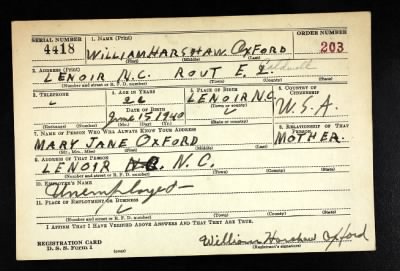 SERIAL NUMBER 1. NAME (Print) ORDER NUMBER
4418 WILLIAM HARSHAW OXFORD 203
(First) (Middle) (Last)
2. ADDRESS (Print)
LENOIR N.C. ROUT E. 2 Caldwell
(Number and street or R. F. D. number) (Town) (County) (State)
3. TELEPHONE 4. AGE IN YEARS 5. PLACE OF BIRTH 6. COUNTRY OF CITIZENSHIP
LENOIR N.C.
DATE OF BIRTH (Town or county)
June 15 1940 U.S.A.
(Exchange) (Number) (Mo.) (Day) (Yr.) (State or country)
7. NAME OF PERSON WHO WILL ALWAYS KNOW YOUR ADDRESS 8. RELATIONSHIP OF THAT PERSON
MARY JANE OXFORD MOTHER
(Mr., Mrs., Miss) (First) (Middle) (Last)
9. ADDRESS OF THAT PERSON
LENOIR N.C.
(Number and street or R. F. D. number) (Town) (County) (State)
10. EMPLOYER'S NAME
Unemployed
11. PLACE OF EMPLOYMENT OR BUSINESS
(Number and street or R. F. D. number) (Town) (County) (State)
I AFFIRM THAT I HAVE VERIFIED ABOVE ANSWERS AND THAT THEY ARE TRUE.
REGISTRATION CARD
D. S. S. Form 1 (over) William Harshaw Oxford
(Registrant's signature)